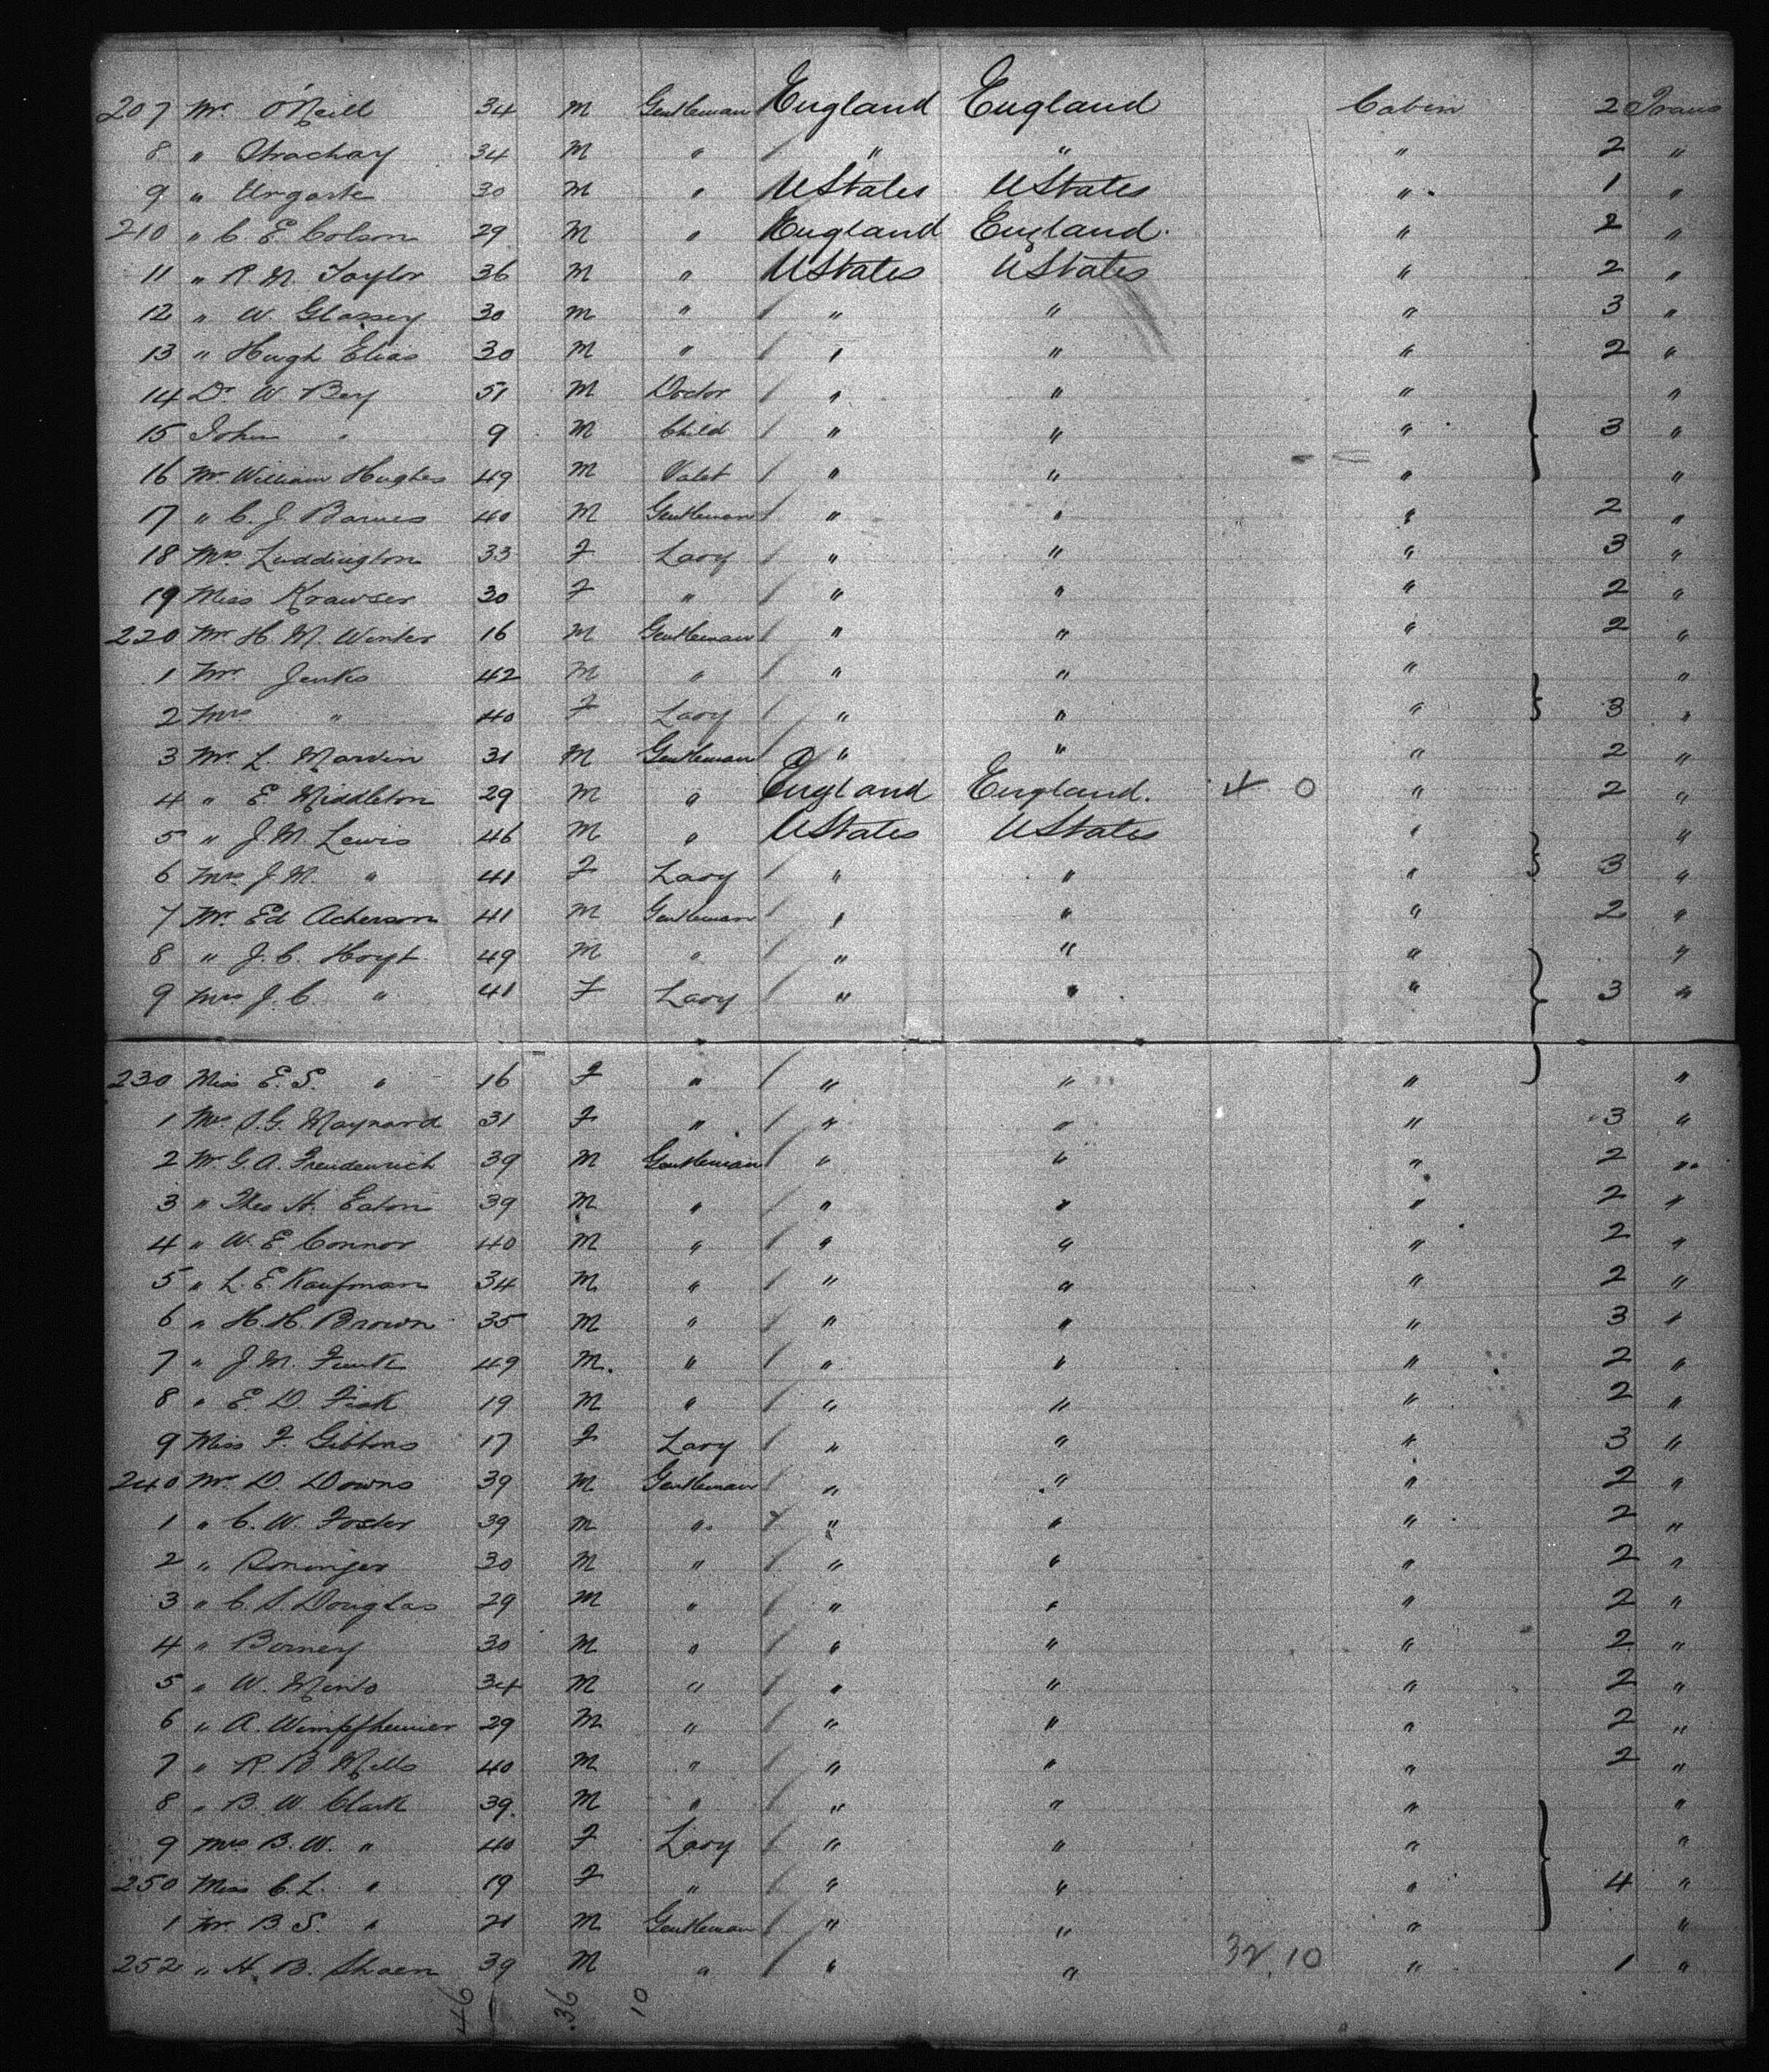 207 Mr O'Neill 34 M Gentleman England England Cabin 2 Trans
8 " Strachay 34 M " / " " " 2 "
9 " Urgarte 30 M " UStates UStates " 1 "
210 " C. E. Colson 29 M " England England. " 2 "
11 " R. M. Taylor 36 M " UStates UStates " 2 "
12 " W. Glassey 30 M " / " " " 3 "
13 " Hugh Elias 30 M " / " " " 2 "
14 Dr W Bey 51 M Doctor / " " " "
15 John " 9 M Child / " " " 3 "
16 Mr William Hughes 49 M Valet / " " " "
17 " C. J. Barnes 40 M Gentleman / " " " 2 "
18 Mrs Luddington 33 F Lady / " " " 3 "
19 Miss Krawser 30 F " / " " " 2 "
220 Mr H. M. Winter 16 M Gentleman / " " " 2 "
1 Mr Jenks 42 M " / " " " "
2 Mrs " 40 F Lady / " " " 3 "
3 Mr L. Marvin 31 M Gentleman / " " " 2 "
4 " E. Middleton 29 M " England England. 4 0 " 2 "
5 " J. M. Lewis 46 M " UStates UStates " "
6 Mrs J. M. " 41 F Lady / " " " 3 "
7 Mr Ed Acherson 41 M Gentleman / " " " 2 "
8 " J. C. Hoyt 49 M " / " " " "
9 Mrs J. C " 41 F Lady / " " " 3 "
230 Miss E. S. " 16 F " / " " " "
1 S. G. Maynard 31 F " / " " " 3 "
2 Mr G. A. 39 M Gentleman / " " " 2 "
3 " Theo H. Eaton 39 M " / " " " 2 "
4 " W. E. Connor 40 M " / " " " 2 "
5 " L. E. Kaufman 34 M " / " " " 2 "
6 " H. H. Brown 35 M " / " " " 3 "
7 " J. M. Funk 49 M. " / " " " 2 "
8 " E D. Fisk 19 M " / " " " 2 "
9 Miss F. Gibbons 17 F Lady / " " " 3 "
240 Mr D. Downs 39 M Gentleman / " " " 2 "
1 " C. W. Foster 39 M " " " " 2 "
2 " 30 M " / " " " 2 "
3 " C. S. Douglas 29 M " / " " " 2 "
4 " Borney 30 M " / " " " 2 "
5 " W. Minto 34 M " / " " " 2 "
6 " A. Wimpfheimer 29 M " / " " " 2 "
7 " R B Mills 40 M " / " " " 2 "
8 " B. W Clark 39. M " / " " " "
9 Mrs B. W. " 40 F Lady / " " " "
250 Miss C. L. " 19 F " / " " " 4 "
1 Mr B. S. " 21 M Gentleman / " " " "
252 " H. B. Shaen 39 M " / " " 32. 10 " 1 "
46 36 10